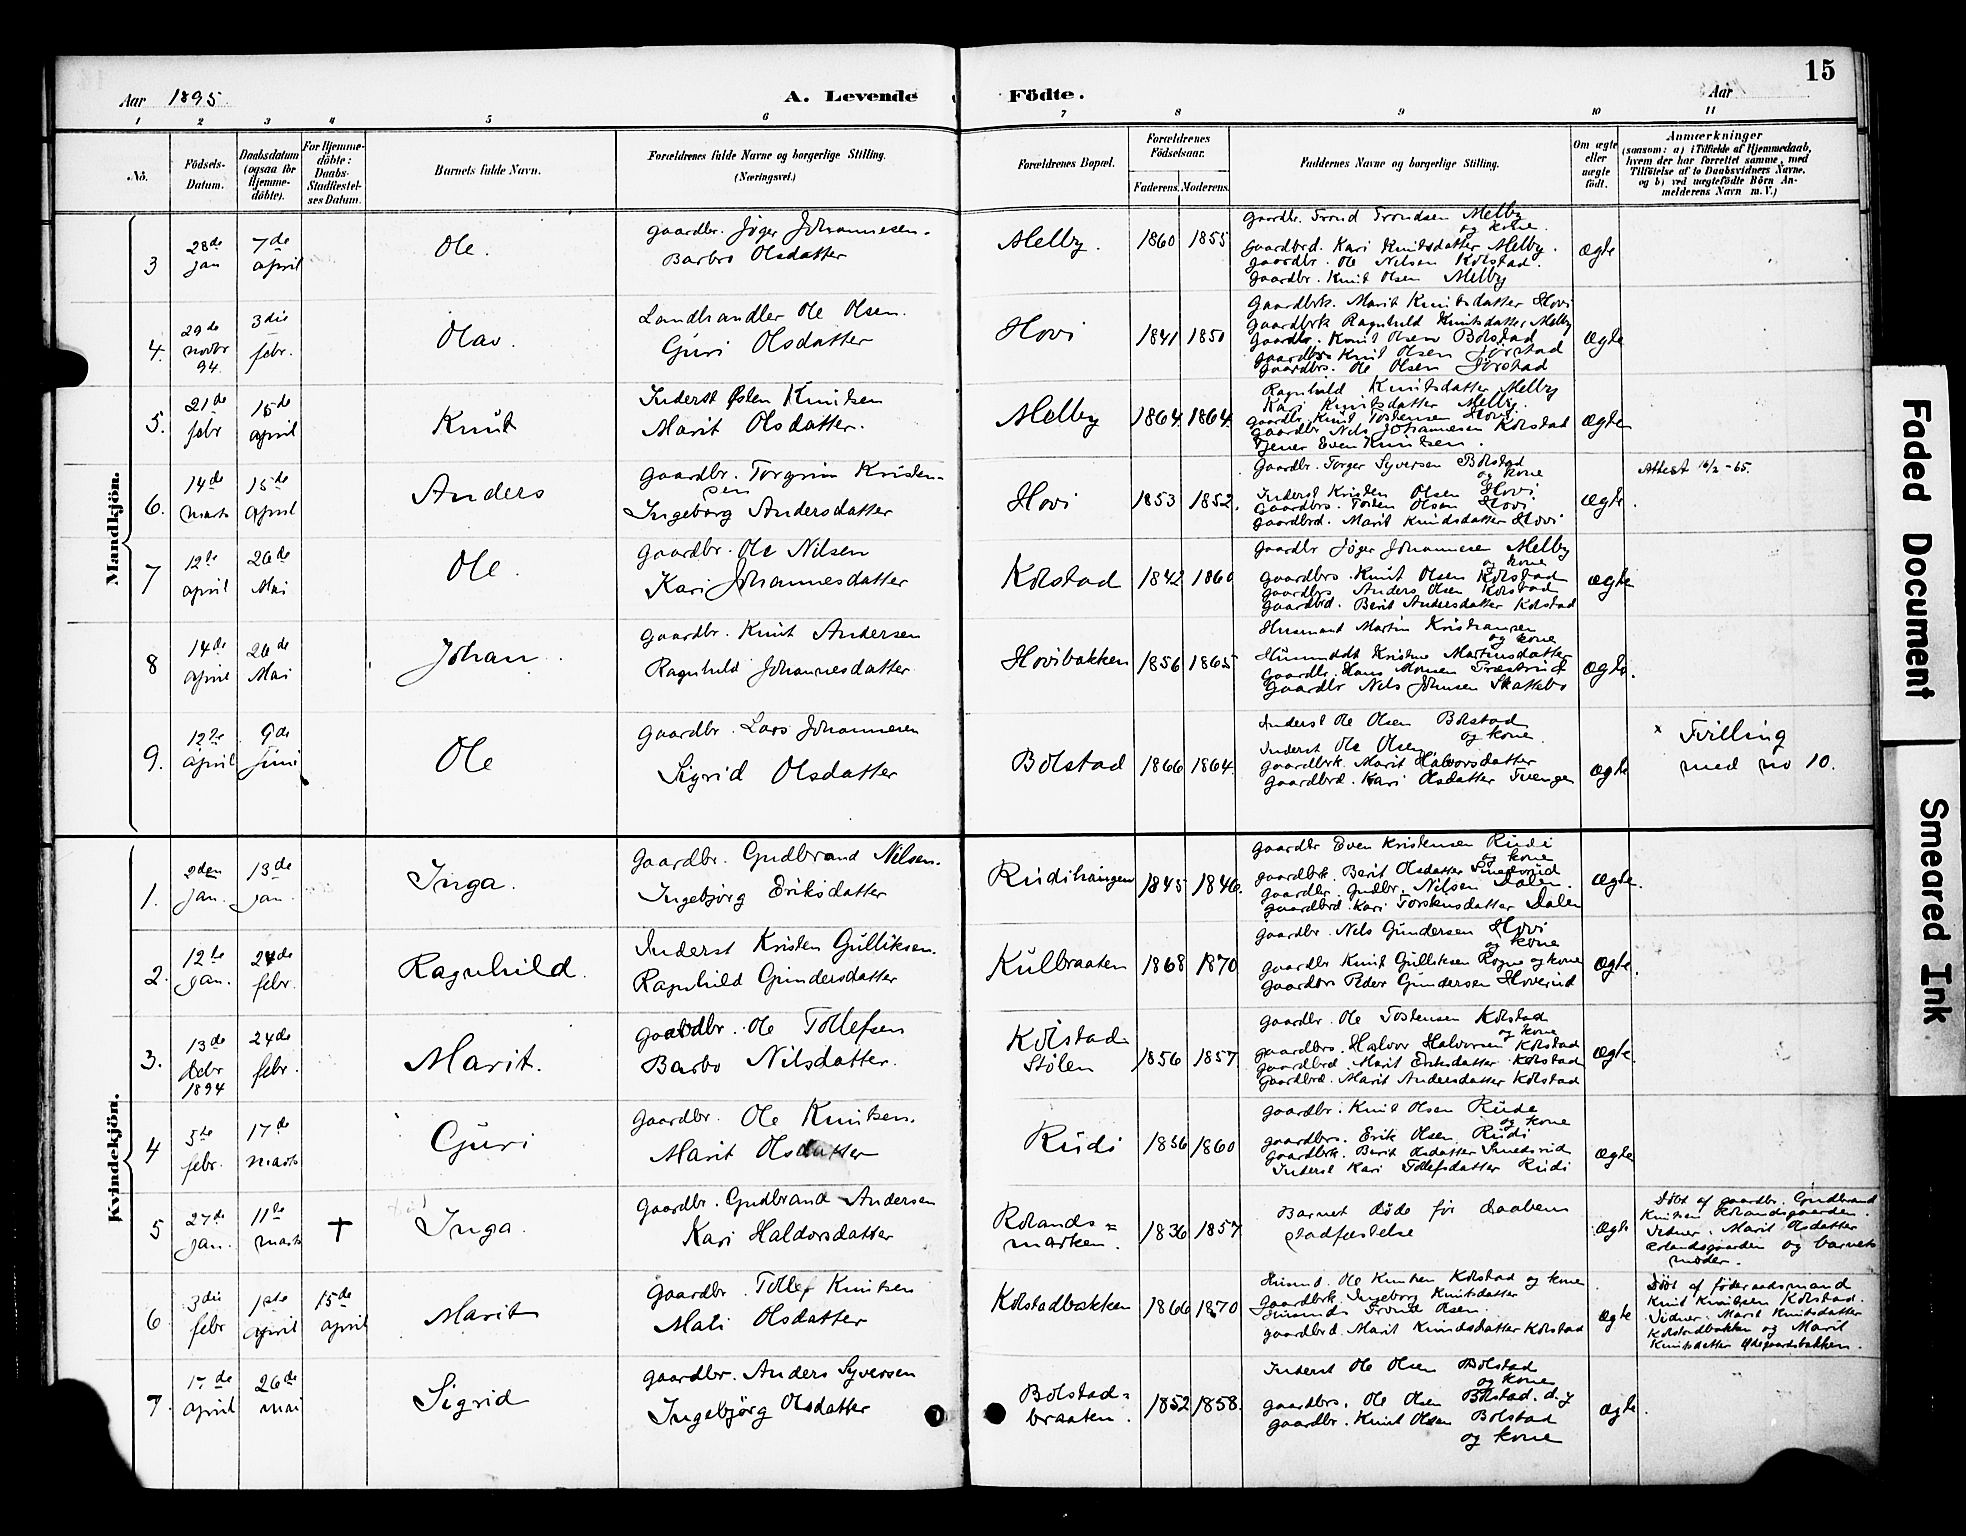 15
Aar 1895.
A. Levende Födte.
Aar
1 2 3 4 5 6 7 8 9 10 11
No.
Födsels-Datum.
Daabsdatum (ogsaa for Hjemme-döbte).
For Hjemme-döbte: Daabs-Stadfæstel-ses Datum.
Barnets fulde Navn.
Forældrenes fulde Navne og borgerlige Stilling.
(Næringsvei.)
Forældrenes Bopæl.
Forældrenes Födselsaar.
Faderens. Moderens.
Faddernes Navne og borgerlige Stilling.
Om ægte eller uægte födt.
Anmærkninger
(saasom: a) i Tilfælde af Hjemmedaab, hvem der har forrettet samme, med Tilföielse af to Daabsvidners Navne, og b) ved uægtefödte Börn An-melderens Navn m. V.)
Mandkjön.
3 28de jan 7de april Ole. gaardbr. Jøger Johannesen.
Barbro Olsdatter
Melby. 1860 1855
gaardbr. Trond Trondsen Melby
og kone.
gaardbrd. Kari Knutsdatter Melby.
gaardbr. Ole Nilsen Kolstad.
gaardbr. Knut Olsen Melby
ægte
4. 29de novbr 94. 3die febr. Olav. Landhandler Ole Olsen.
Guri Olsdatter
Hovi 1841 1850
Gaardbrk. Marit Knutsdatter Hovi
gaardbrk Ragnhild Knutsdatter Melby
gaardbr. Knut Olsen Bolstad
gaardbrs Knut Olsen Jørstad
gaardbrs. Ole Olsen Jørstad
ægte
5. 21de febr 15de april Knut Inderst Østen Knutsen
Marit Olsdatter.
Melby 1864 1864
Ragnhild Knutsdatter Melby
Kari Knutsdatter Melby.
gaardbr Knut Tostensen Hovi
gaardbr Nils Johannesen Kolstad
Tjener Even Knutsen.
ægte
6. 14de marts 15de april Anders gaardbr. Torgrim Kristen-
sen
Ingeborg Andersdatter
Hovi 1853 1852.
Gaardbr. Torger Syversen Bolstad
og kone
Inderst Kristen Olsen Hovi
gaardbrs. Tosten Olsen Hovi
gaardbrd. Marit Knudsdatter Hovi
ægte.
Attest 16/2-65.
7 12te april 26de Mai Ole. gaardbr. Ole Nilsen
Kari Johannesdatter
Kolstad 1842 1860
gaardbr Jøger Johannesen Melby
og kone
gaardbrs. Knut Olsen Kolstad
gaardbrs Anders Olsen Kolstad
gaardbrd. Berit Andersdatter Kolstad
ægte
8 14de april 26de Mai Johan. gaardbr. Knut Andersen
Ragnhild Johannesdatter
Hovibakken 1856 1865
Husmand Martin Kristiansen
og kone
Kristine Martinsdatter
gaardbr. Hans
Gaardbr Nils Johnsen Skattebo
ægte.
9. 12te april 9de Juni Ole gaardbr. Lars Johannesen
Sigrid Olsdatter
Bolstad 1866 1864.
Inderst Ole Olsen Bolstad
og kone.
Inderst Ole Olsen
gaardbrk. Marit Halvorsdatter
gaardbrd. Kari Olsdatter Tvengen
ægte
x Tvilling
med no 10.
Kvindekjön.
1. 2den jan. 13de jan. Inga. Gaardbr. Gudbrand Nilsen.
Ingebjørg Eriksdatter
Rudihaugen 1845 1846.
gaardbr Even Kristensen Rudi
og kone
gaardbrk. Berit Olsdatter Smedsrud
gaardbr. Gudbr. Nilsen Dalen.
gaardbrd. Kari Torstensdatter Dalen
Ægte.
2. 12te jan. 24de febr. Ragnhild. Inderst Kristen Gulliksen.
Ragnhild Gundersdatter
Kulbraaten 1868 1870
gaardbr. Nels Gundersen Hovi
og kone
gaardbr Knut Gulliksen Rogne og kone
gaardbrs Peder Gundersen Hoverud
Ægte.
3. 13de debr 1894 24de febr. Marit. gaardbr. Ole Tollefsen
Barbo Nilsdatter.
Kolstad-
Stølen
1856 1857
gaardbr. Ole Tostensen Kolstad
og kone
gaardbrs. Halvor Halvorsen Kolstad
gaardbrd. Marit Eriksdatter Kolstad
gaardbrd. Marit Andersdatter Kolstad
ægte.
4 5te febr. 17de marts Guri Gaardbr. Ole Knutsen.
Marit Olsdatter
Rudi 1856 1860
gaardbr. Knut Olsen Rude
og kone
gaardbrs. Erik Olsen Rudi
gaardbrk. Berit Olsdatter Smedsrud
Inderst Kari Tollefsdatter Rudi
ægte
5 27de jan. 11te marts + Inga. gaardbr. Gudbrand Andersen
Kari Haldorsdatter
Rolands=
marken.
1836 1857
Barnet døde før daabens
stadfæstelse
ægte
Døbt af gaardbr. Gudbrand
Knutsen Rolandsgaarden.
Vidner: Marit Olsdatter
Rolandsgaarden og barnets
moder.
6 3die febr 1ste april 15de april Marit gaardbr. Tollef Knutsen
Mali Olsdatter
Kolstadbakken 1866 1870
Husmd. Ole Knutsen Kolstad og kone
Gaardbrk. Ingeborg Knutsdatter
Trond Olsen.
gaardbrd. Marit Knudsdatter Kolstad
ægte
Døbt af føderaadsmand
Knut Knutsen Kolstad.
Vidner: Marit Knutsdatter
Kolstadbakken og Marit
Knutsdatter Ødegaardsbakken.
7. 17de april 26de mai Sigrid gaardbr. Anders Syversen
Ingebjørg Olsdatter
Bolstad=
braaten.
1852 1858.
Inderst Ole Olsen Bolstad
og kone
gaardbrs. Ole Olsen Bolstad. d.y
gaardbr. Knut Olsen Bolstad
og kone
ægte.
Faded Document
Smeared Ink